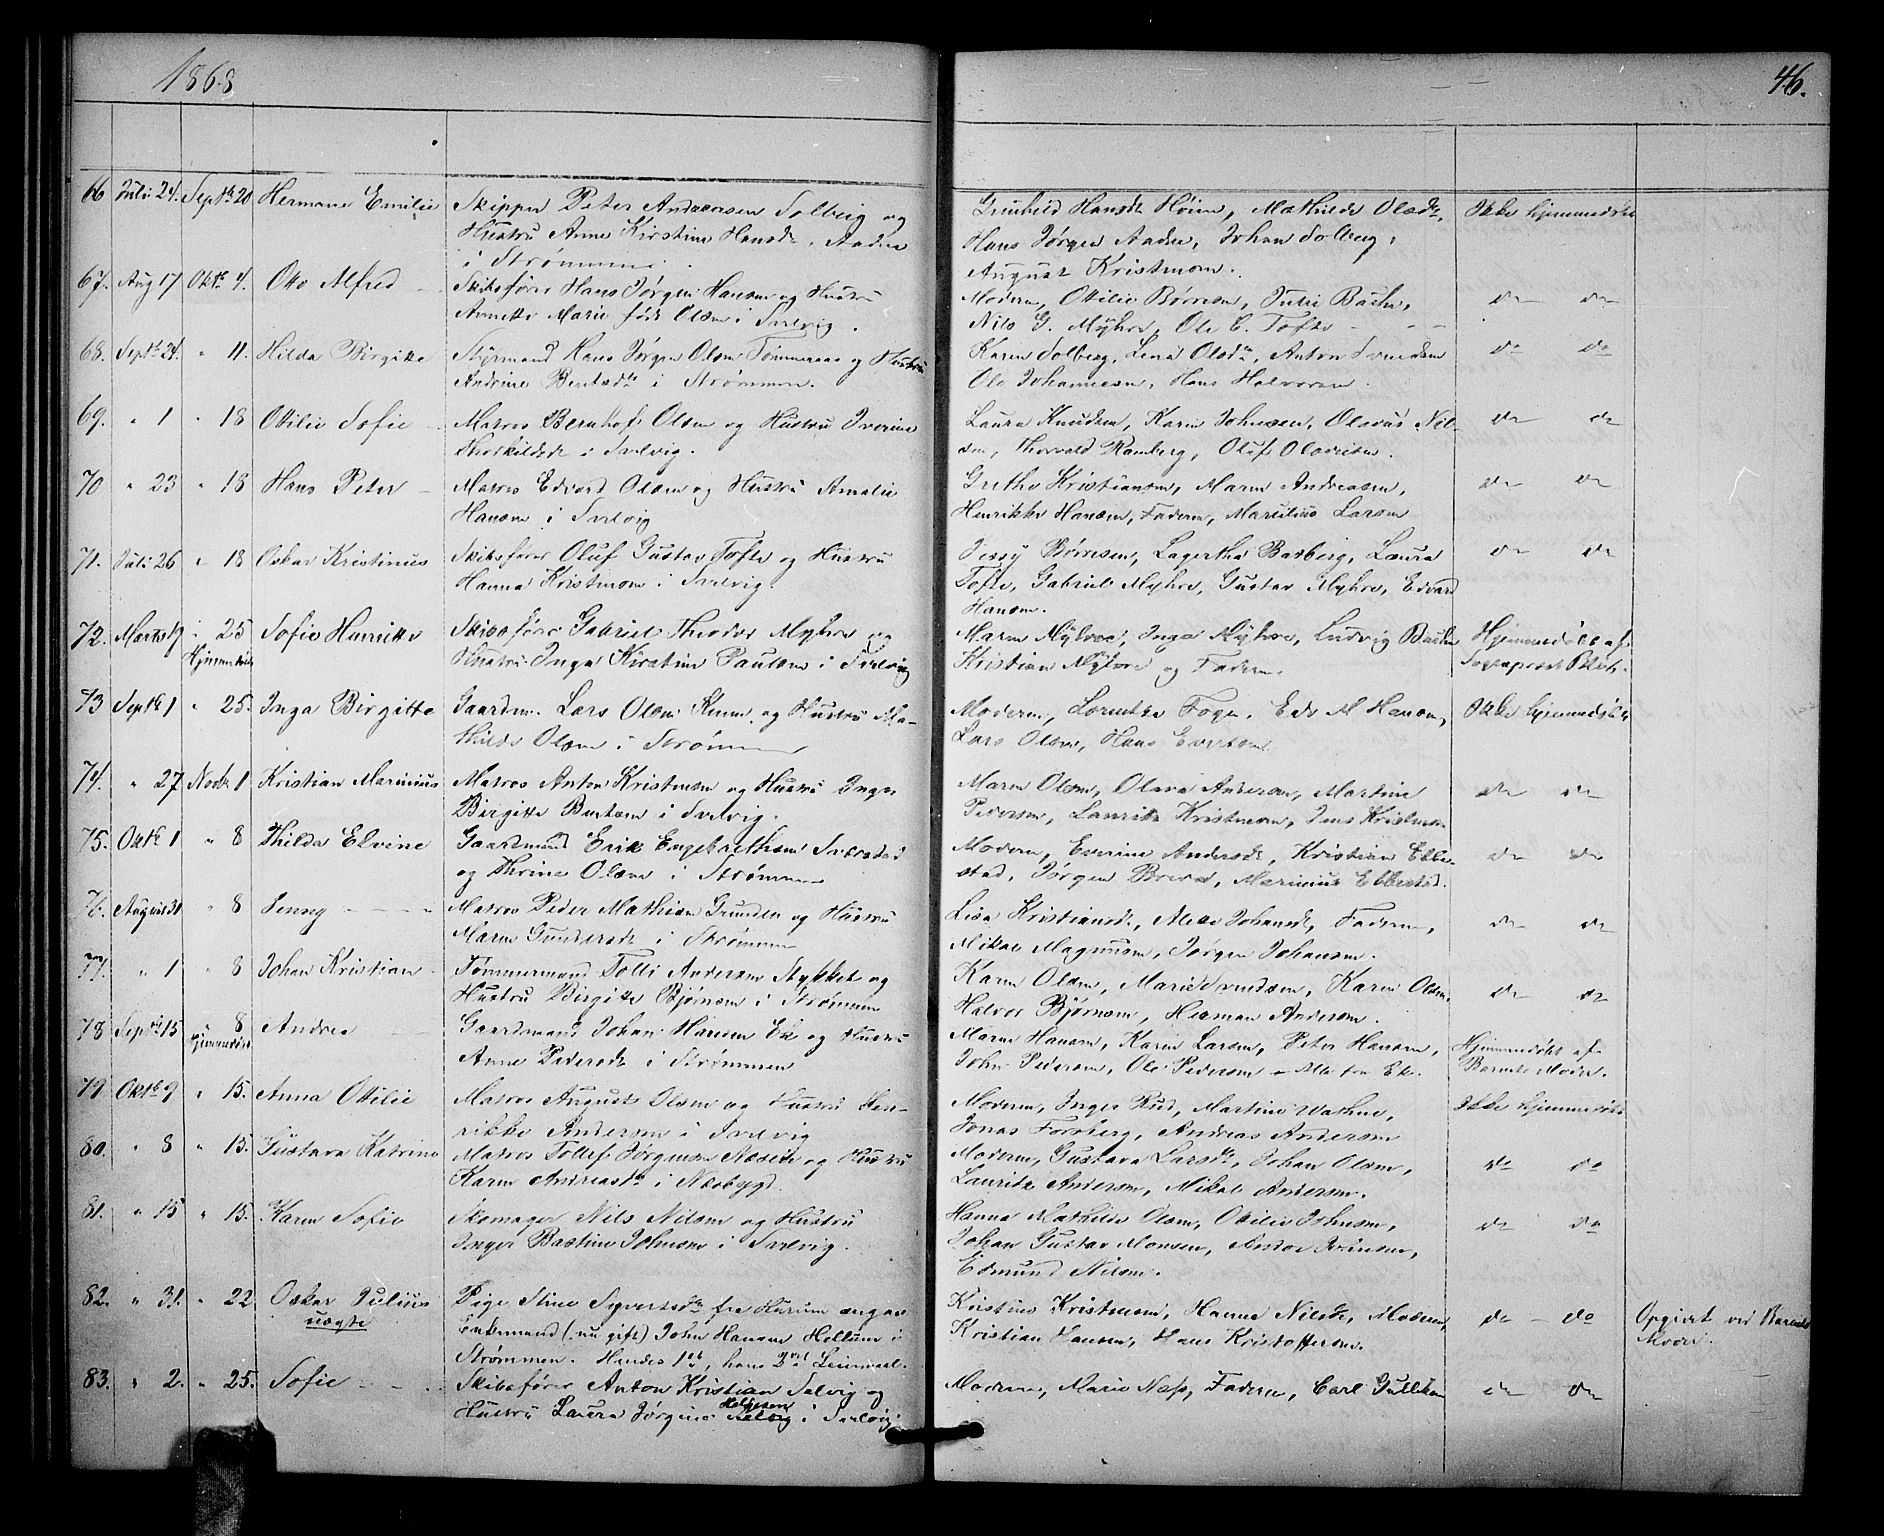 1868
46.
66 Juli 24. Septbr 20 Hermane Emilie Skipper Peter Andersen Solberg og
Hustru Anne Kirstine Hansdr. Aadne
i Strømmen.
Gunhild Hansdr Høien, Mathilde Olsdr,
Hans Jørgen Aadne, Johan Solberg,
August Kristensen.
Ikke hjemmedøbt
67. Aug 17 Oktbr 4. Otto Alfred Skibsfører Hans Jørgen Hansen og Hustru
Annette Marie født Olsen i Svelvig.
Moderen, Ottilie Børresen, Julie Bache,
Nils G. Myhre, Ole C. Tofte
do do
68. Septbr 24. " 11. Hilda Birgitte Styrmand Hans Jørgen Olsen Tømmeraas og Hustru
Andrine Berntsdr i Strømmen.
Karen Solberg, Lena Olsdr, Anton Svendsen
Ole Johannesen, Hans Halvorsen.
do do
69. " 1 " 18 Ottilie Sofie Matros Bernhof Olsen og Hustru Iverine
Thorkildsdr i Svelvig.
Laura Knudsen, Karen Johnsen, Olavus Nil-
sen, Thorvald Ramberg, Oluf Olavesen.
do do
70 " 23 " 18 Hans Peter Matros Edvard Olsen og Hustru Amalie
Hansen i Svelvig
Grethe Kristiansen, Maren Andreasen,
Henrikke Hansen, Faderen, Marelius Larsen
do do
71. Juli 26 " 18 Oskar Kristinus Skibsfører Oluf Gustav Tofte og Hustru
Hanna Kristensen i Svelvig.
Jessy Børresen, Lagertha Basberg, Laura
Tofte, Gabriel Myhre, Gustav Myhre, Edvard
Hansen.
do do
72. Marts 19 " 25 Sofie Henrikke Skibsfører Gabriel Theodor Myhre og
Hjemmedøbt
Hustru Inga Kirstine Paulsen i Svelvig
Maren Myhre, Inga Myhre, Ludvig Bache
Kristian Myhre og Faderen.
Hjemmedøbt af
Sogneprest
73 Septbr 1 " 25. Inga Birgitte Gaardm. Lars Olsen og Hustru Ma-
thilde Olsen i Strømmen
Moderen, Lorentze Foge, Edv M Hansen,
Lars Olsen, Hans Evertsen.
Ikke hjemmedøbt
74. " 27 Novbr 1 Kristian Marinius Matros Anton Kristensen og Hustru Inger
Birgitte Berntsen i Svelvig.
Maren Olsen, Olava Andersen, Martine
Pedersen, Lauritz Kristensen, Jens Kristensen
do do
75. Oktbr 1 " 8 Thilda Elvine Gaardmand Erik Engebrethsen
og Thrine Olsen i Strømmen
Moderen, Everine Andersdr, Kristian Ebbe-
stad, Jørgen Brevd, Marinius Ebbestad.
do do
76. August 31 " 8 Jenny Matros Peder Mathisen Grunden og Hustru
Maren Gundersdr i Strømmen
Lisa Kristiansdr, Mette Johansdr, Faderen,
Mikal Magnusen, Jørgen Johansen.
do do
77. " 1 " 8 Johan Kristian Tømmermand Tolli Andersen Stykket og
Hustru Birgitte Bjørnsen i Strømmen
Karen Olsen, Marie Svendsen, Karen Olsen,
Halvor Bjørnsen, Herman Andersen.
do do
78 Septbr 15 8 Andrea Gaardmand Johan Hansen Ek og Hustru
Hjemmedøbt
Anne Pedersdr i Strømmen
Maren Hansen, Karen Larsen, Peter Hansen,
John Pedersen, Ole Pedersen - Alle fra Ek.
Hjemmedøbt af
Barnets Moder.
79 Oktbr 9 " 15. Anna Ottilie Matros August Olsen og Hustru Hen-
rikke Andersen i Svelvig
Moderen, Inger Rud, Martine Wathne,
Jonas Forsberg, Andreas Andersen
Ikke hjemmedøbt
80. " 8 " 15. Gustava Katrine Matros Tollef Jørgensen Nesset og Hustru
Karen Andreasdr i Nesbygd.
Moderen, Gustava Larsdr, Johan Olsen,
Lauritz Andersen, Mikal Andersen.
do do
81. " 15 " 15. Karen Sofie Skomager Nils Nilsen og Hustru
Inger Bastine Johnsen i Svelvig.
Hanna Mathilde Olsen, Ottilie Johnsen,
Johan Gustav Monsen, Anton Svensen,
Edmund Nilsen.
do do
82. " 31. " 22 Oskar Julius Pige Stine Syvertsdr fra Hurum angav
uægte
Enkemand (nu gift) John Hansen Hellum i
Strømmen. Hendes 1st, hans 2det Leiermaal.
Kristine Kristensen, Hanna Nilsdr, Moderen,
Kristian Hansen, Hans Kristoffersen.
do - do
Opgivet ved Barnets
Moder.
83. " 2. " 25. Sofie Skibsfører Anton Kristian Salvig og
Helgesen
Hustru Laura Jørgine Salvig i Svelvig
Moderen, Marie Næss, Faderen, Carl Gulliksen
do do